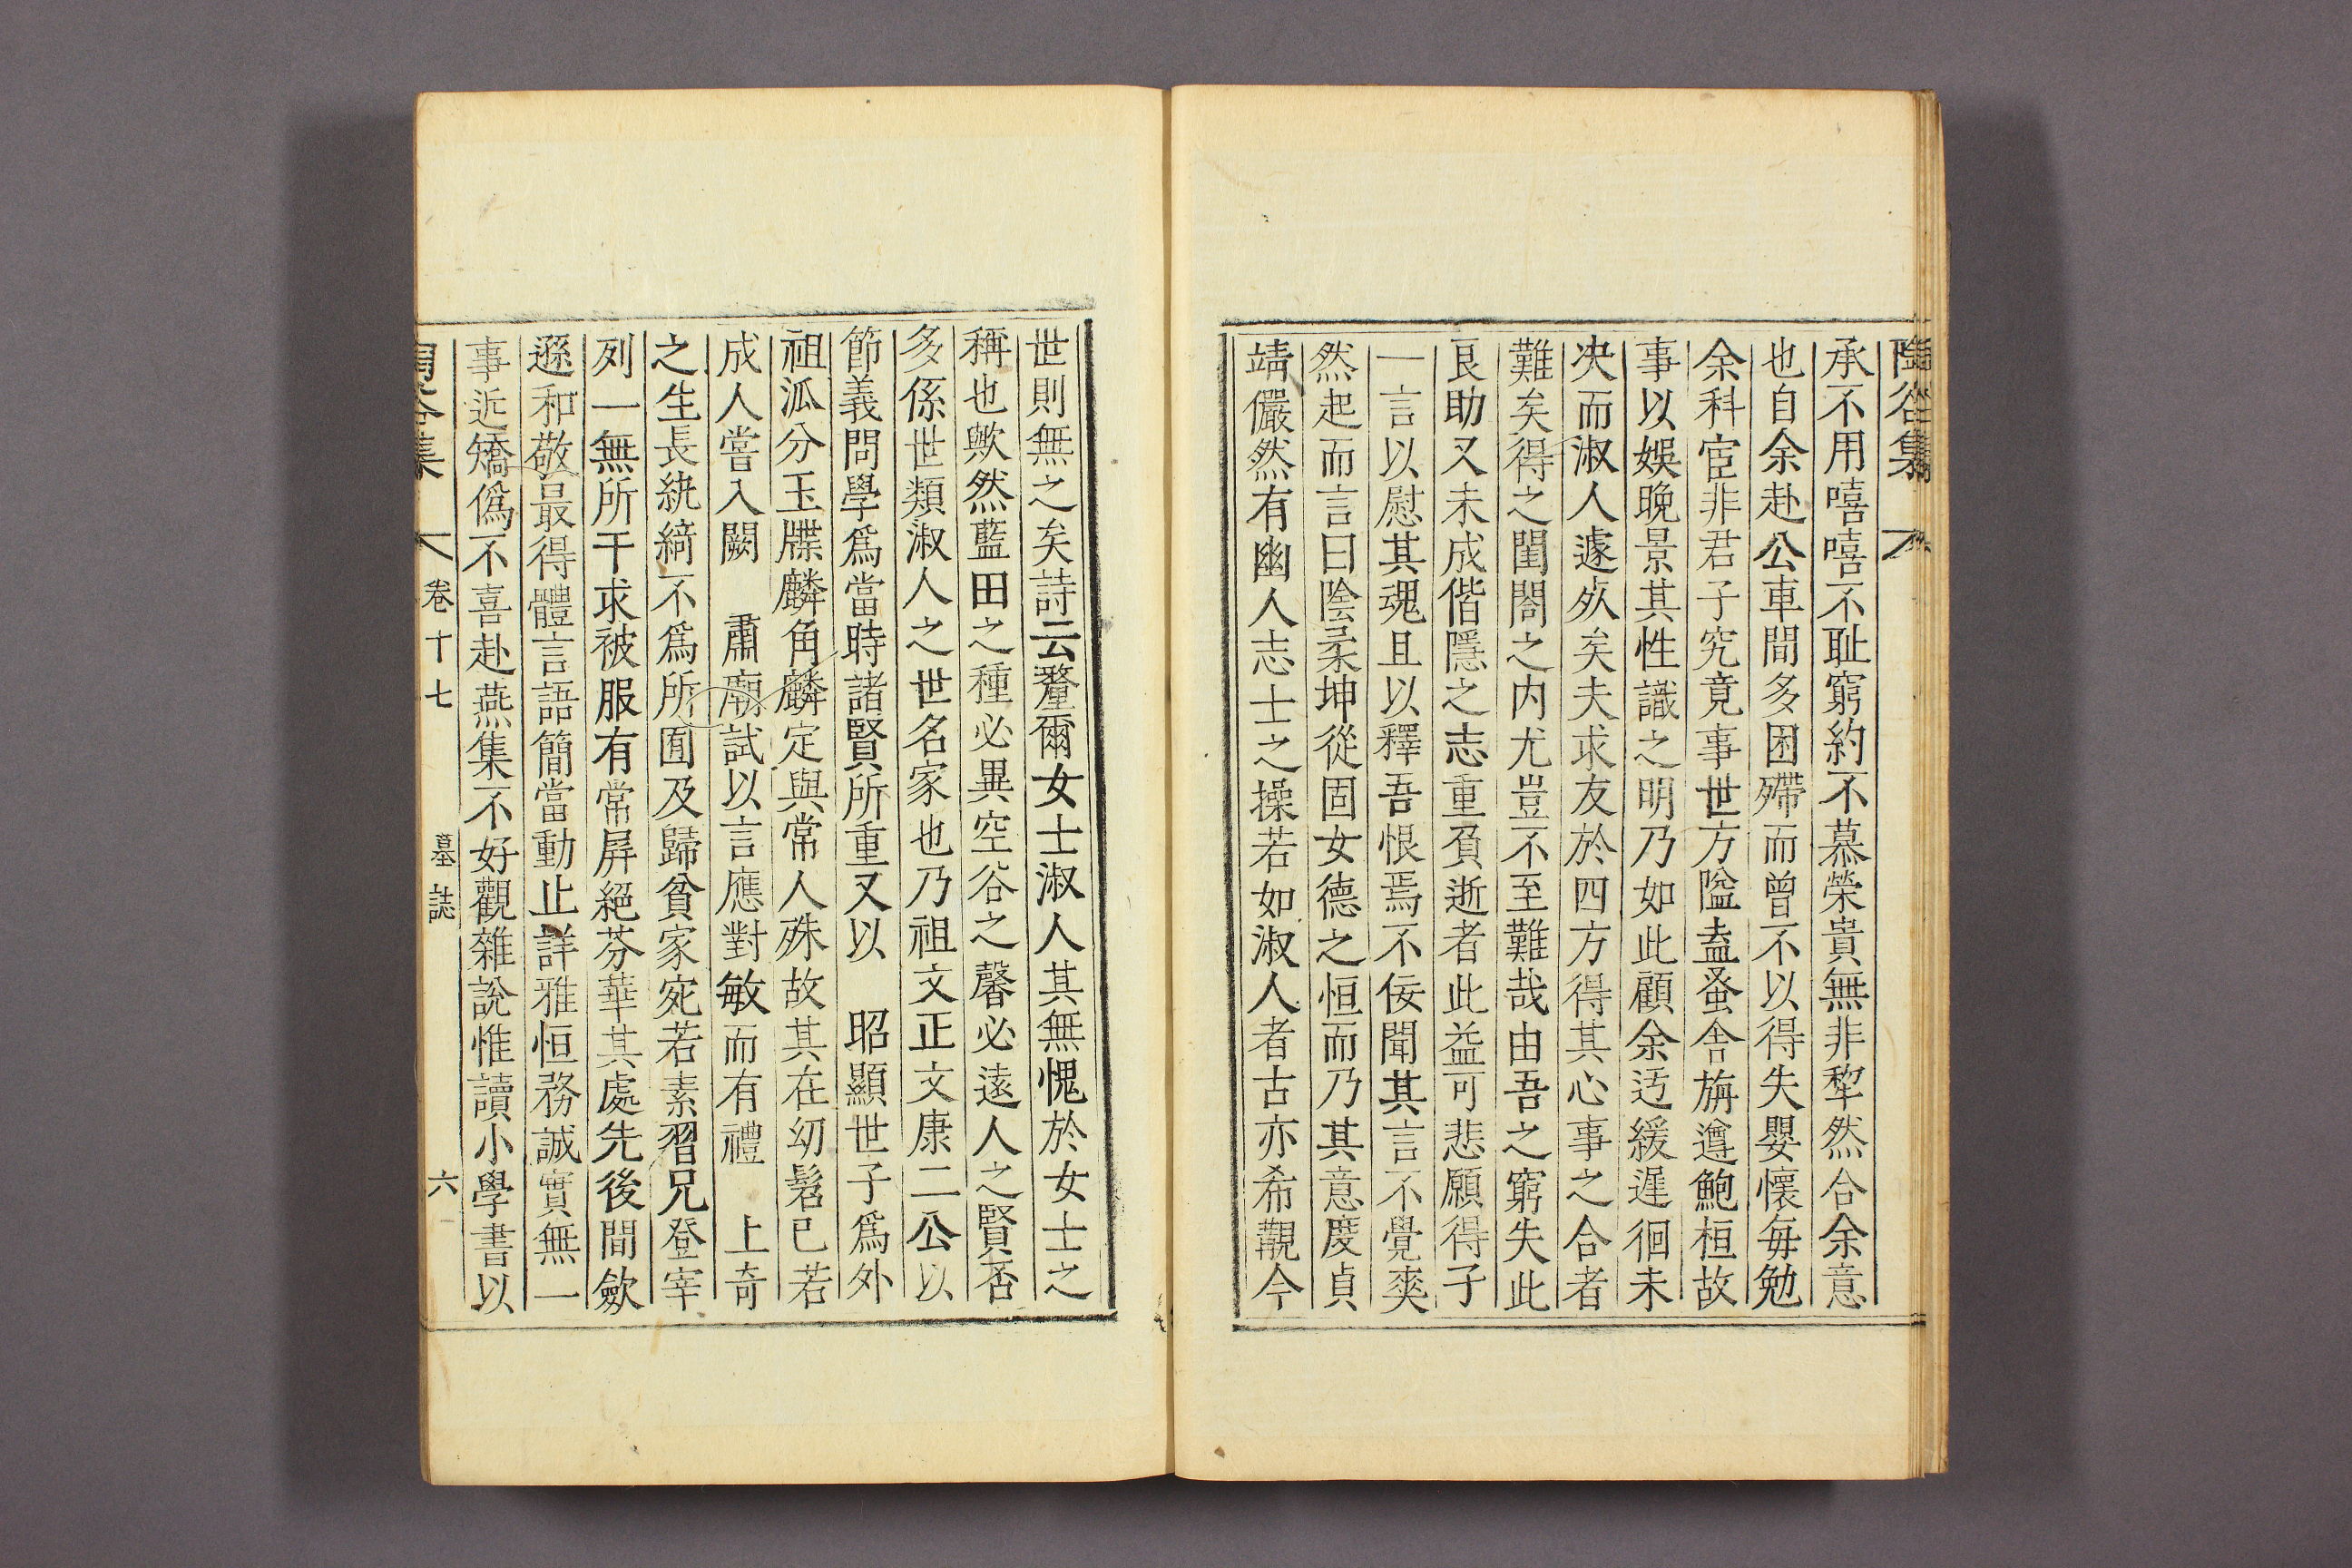 陶谷集
承不用嘻嘻不耻窮約不慕榮貴無非犂然合余意
也自余赴公車間多困殢而曾不以得失嬰懷每勉
余科宦非君子究竟事世方隘盍蚤舍旃遵鮑桓故
事以娛晩景其性識之明乃如此顧余迃緩遲徊未
决而淑人遽歿矣夫求友於四方得其心事之合者
難矣得之閨閤之内尤豈不至難哉由吾之窮失此
良助又未成偕隱之志重負逝者此益可悲願得子
一言以慰其魂且以釋吾恨焉不佞聞其言不覺爽
然起而言曰陰柔坤從固女德之恒而乃其意度貞
靖儼然有幽人志士之操若如淑人者古亦希覯今
世則無之矣詩云釐爾女士淑人其無愧於女士之
稱也歟然藍田之種必異空谷之馨必遠人之賢否
多係世類淑人之世名家也乃祖文正文康二公以
節義問學爲當時諸賢所重又以 昭顯世子爲外
祖泒分玉牒麟角麟定與常人殊故其在幼髫已若
成人嘗入闕 肅廟試以言應對敏而有禮 上奇
之生長紈綺不爲所囿及歸貧家宛若素習兄登宰
列一無所干求被服有常屛絕芬華其處先後間斂
遜和敬最得體言語簡當動止詳雅恒務誠實無一
事近矯僞不喜赴燕集不好觀雜說惟讀小學書以
陶谷集 卷十七 墓誌 六